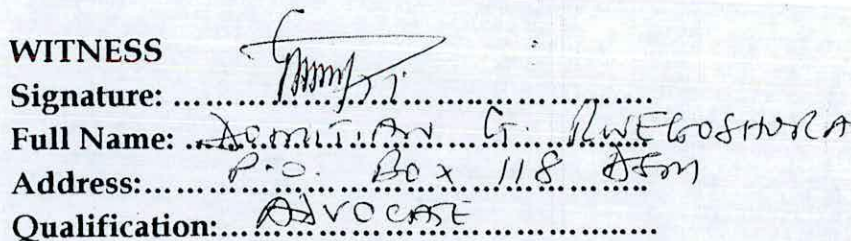 WITNESS
Signature:
Full Name: DOMITIAN G. RWEGOSHORA
Address: P.O. Box 118 DSM
Qualification: ADVOCATE